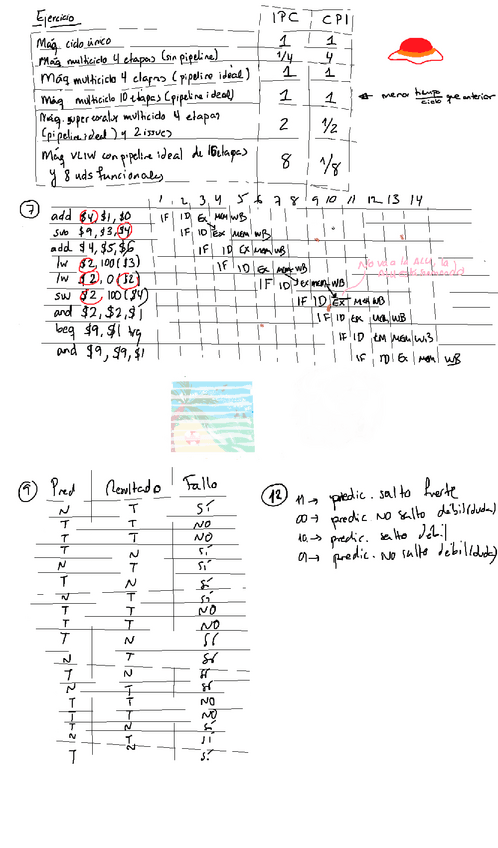 Ejercicio
IPC CPI
Máq ciclo único 1 1
Máq multiciclo 4 etapas (sin pipeline) 1/4 4
Máq multiciclo 4 etapas (pipeline ideal) 1 1
Máq multiciclo 10 etapas (pipeline ideal) 1 1 ← menor tiempo/ciclo que anterior
Máq. superescalar multiciclo 4 etapas
(pipeline ideal) y 2 issues 2 1/2
Máq VLIW con pipeline ideal de etapas
y 8 uds funcionales 8 1/8
7 1 2 3 4 5 6 7 8 9 10 11 12 13 14
add $4, $1, $0 IF ID EX MEM WB
sub $9, $3, $4 IF ID EX MEM WB
add $4, $5, $6 IF ID EX MEM WB
lw $2, 100($3) IF ID EX MEM WB
lw $2, 0($2) IF ID EX MEM WB
sw $2, 100($4) IF ID EX MEM WB
and $2, $2, $1 IF ID EX MEM WB
beq $9, $1 IF ID EX MEM WB
and $9, $9, $1 IF ID EX MEM WB
9 Pred Resultado Fallo
N T SÍ
T T NO
T T NO
T N SÍ
N T SÍ
T N SÍ
N T SÍ
T T NO
T T NO
T N SÍ
N T SÍ
T N SÍ
N T SÍ
T T NO
T T NO
T N SÍ
N T SÍ
T N SÍ
12 11 → predic. salto fuerte
00 → predic NO salto débil (duda)
10 → predic. salto débil
01 → predic. NO salto débil (duda)